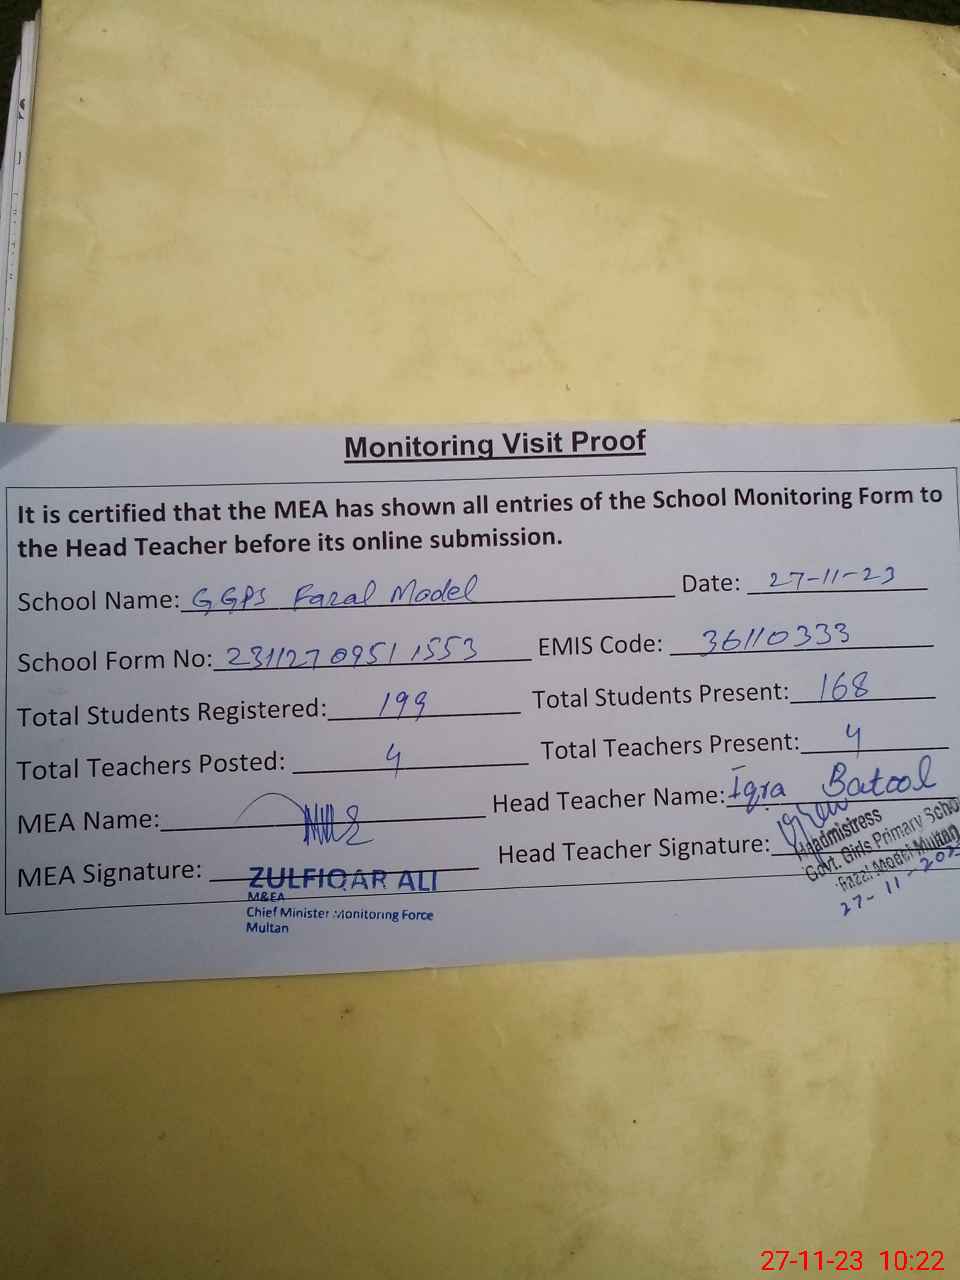 Monitoring Visit Proof
It is certified that the MEA has shown all entries of the School Monitoring Form to
the Head Teacher before its online submission.
School Name: GGPS Fazal Model Date: 27-11-23
School Form No: 2311270951 1553 EMIS Code: 36110333
Total Students Registered: 199 Total Students Present: 168
Total Teachers Posted: 4 Total Teachers Present: 4
MEA Name: Head Teacher Name: Iqra Batool
MEA Signature: Head Teacher Signature:
ZULFIQAR ALI
M&EA
Chief Minister Monitoring Force
Multan
Headmistress
Govt. Girls Primary Scho
Fazal Model Multan
27-11-202
27-11-23 10:22